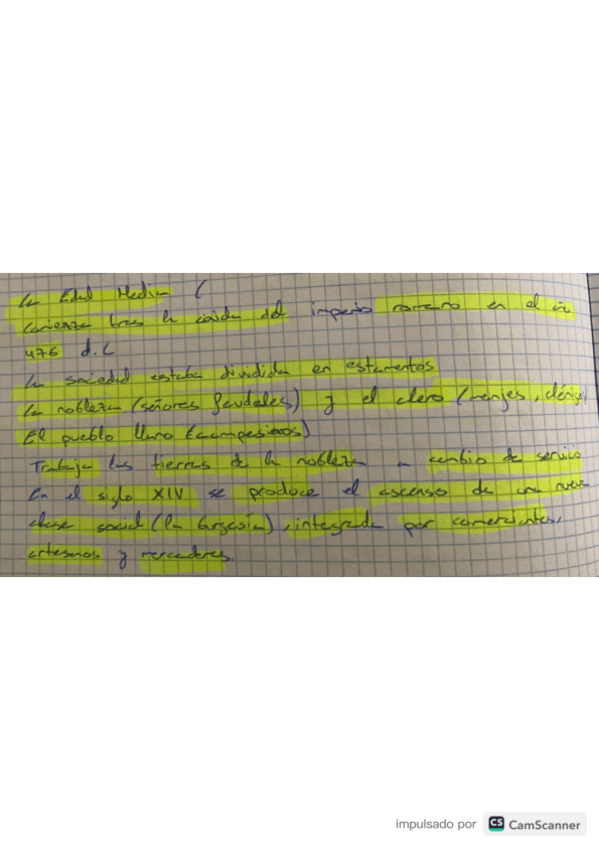 La Edad Media (
Comienza tras la caida del imperio romano en el
476 d.C
La sociedad estaba dividida en estamentos
La nobleza (señores feudales) y el clero (monjes, clérigos,
El pueblo llano (campesinos)
Trabaja las tierras de la nobleza a cambio de servicio
En el siglo XIV se produce el ascenso de una nueva
clase social (la burgesía), integrada por comerciantes,
artesanos y mercaderes.
impulsado por CS CamScanner